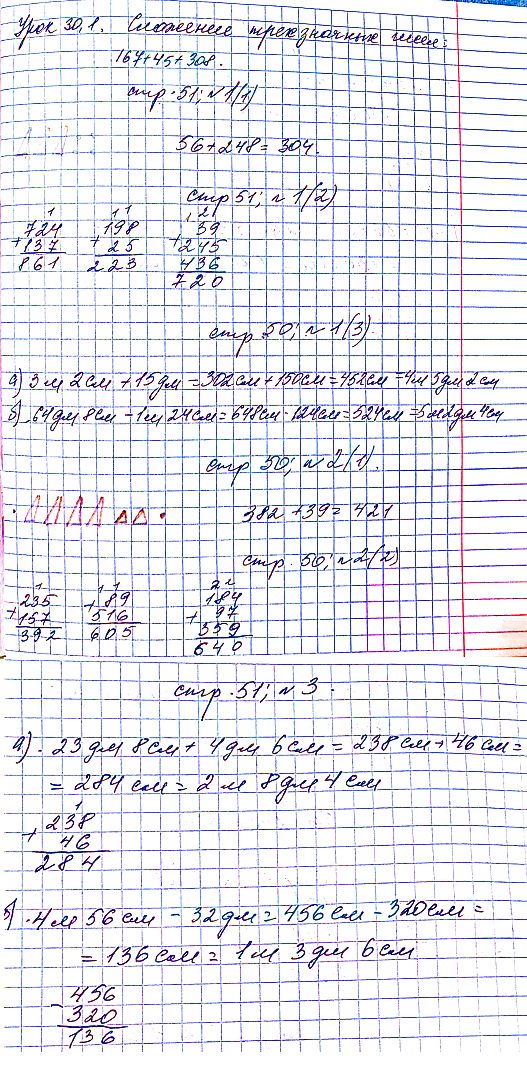 Урок 30,1. Сложение трехзначных чисел:
167+45+308.
стр. 51; №1(1)
56+248=304.
стр 51; №1(2)
1 11 12
724 198 39
+137 +25 +245
861 223 436
720
стр 50; №1(3)
а) 3м 2см + 15дм = 302см + 150см = 452см = 4м 5дм 2см
б) 64дм 8см - 1м 24см = 648см - 124см = 524см = 5м 2дм 4см
стр 50; №2(1).
382 + 39 = 421
стр. 50; №2(2)
1 11 22
235 +89 184
+157 516 +97
392 605 359
640
стр. 51; №3.
а). 23дм 8см + 4дм 6см = 238см + 46см =
= 284см = 2м 8дм 4см
1
238
+ 46
284
б) 4м 56см - 32дм = 456см - 320см =
= 136см = 1м 3дм 6см
456
- 320
136